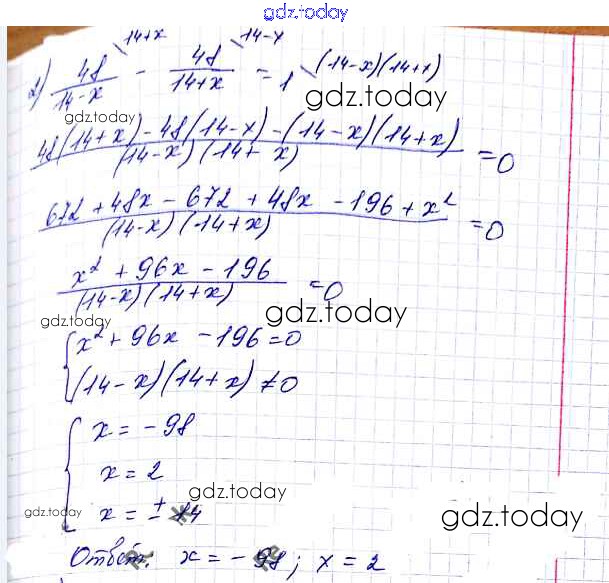 gdz.today
2) 48/(14-x) \14+x - 48/(14+x) \14-x = 1 \(14-x)(14+x)
gdz.today
(48(14+x) - 48(14-x) - (14-x)(14+x))/((14-x)(14+x)) = 0
gdz.today
(672 + 48x - 672 + 48x - 196 + x²)/((14-x)(14+x)) = 0
(x² + 96x - 196)/((14-x)(14+x)) = 0
gdz.today
gdz.today
{ x² + 96x - 196 = 0
(14-x)(14+x) ≠ 0
{ x = -98
x = 2
gdz.today
x = ± 14
gdz.today
gdz.today
Ответ: x = -98; x = 2